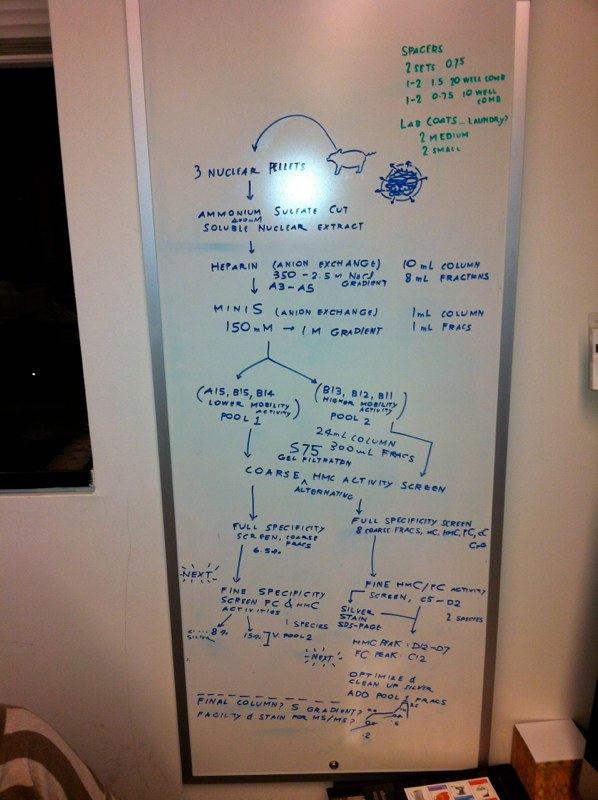 SPACERS
2 SETS 0.75
1-2 1.5 20 WELL COMB
1-2 0.75 10 WELL COMB
LAB COATS... LAUNDRY?
2 MEDIUM
2 SMALL
3 NUCLEAR PELLETS
AMMONIUM SULFATE CUT
SOLUBLE NUCLEAR EXTRACT
HEPARIN (ANION EXCHANGE) 10 mL COLUMN
350 - 2.5 M NaCl GRADIENT 8 mL FRACTIONS
A3-A5
MINI S (ANION EXCHANGE) 1 mL COLUMN
150 mM → 1 M GRADIENT 1 mL FRACS
(A15, B15, B14
LOWER MOBILITY ACTIVITY)
POOL 1
(B13, B12, B11
HIGHER MOBILITY ACTIVITY)
POOL 2
24 mL COLUMN
S75 300 mL FRACS
GEL FILTRATION
COARSE HMC ACTIVITY SCREEN
^ ALTERNATING
FULL SPECIFICITY
SCREEN, COARSE FRACS
FULL SPECIFICITY SCREEN
8 COARSE FRACS, UC, HMC, FC, CC
NEXT
FINE SPECIFICITY
SCREEN FC & HMC
ACTIVITIES
1 SPECIES
8%
15%] V. POOL 2
SILVER
FINE HMC/FC ACTIVITY
SCREEN, C5-D2
2 SPECIES
SILVER
STAIN
SDS-PAGE
HMC PEAK: D12-D7
FC PEAK: C12
NEXT
OPTIMIZE &
CLEAN UP SILVER
ADD POOL 1 FRACS
FINAL COLUMN? S GRADIENT?
FACILITY & STAIN FOR MS/MS?
2